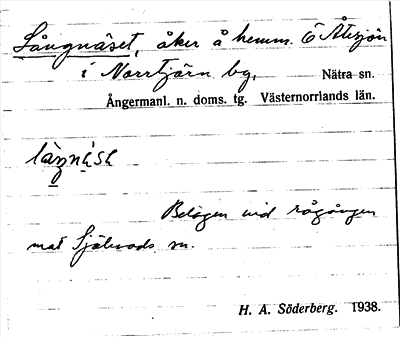 Långnäset, åker å hemm. 6 Åsjön
i Norrtjärn by, Nätra sn.
Ångermanl. n. doms. tg. Västernorrlands län.
Belägen vid rågången
mot Själevads sn.
H. A. Söderberg. 1938.